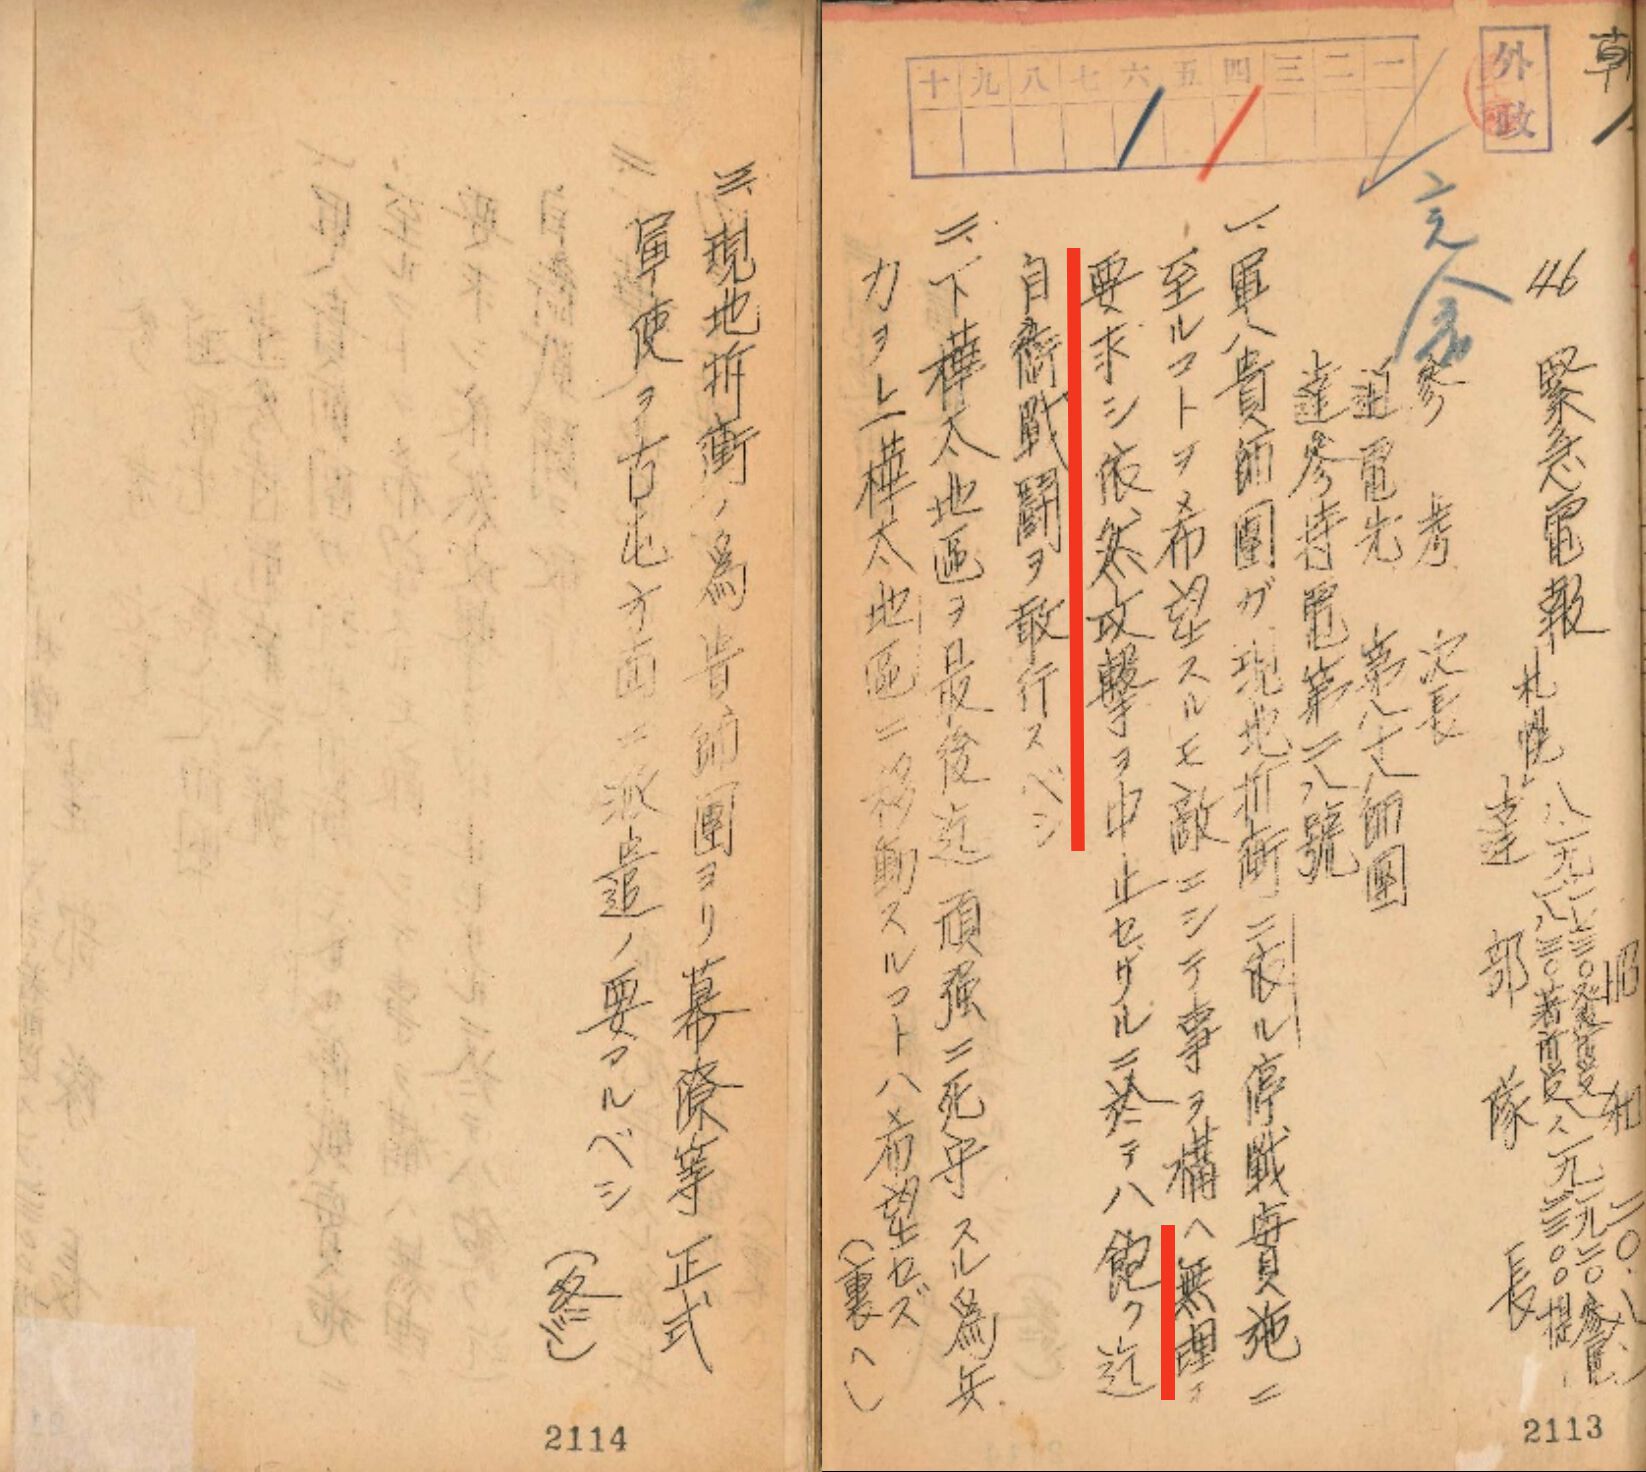 外政
十 九 八 七 六 五 四 三 二 一
46 緊急電報
札幌
達部隊長
参考 次長
通電先 第八十八師團
達参特電第二八號
一、軍ハ貴師團ガ現地折衝ニ依ル停戰実施ニ
至ルコトヲ希望スルモ敵ニシテ事ヲ構ヘ無理ヲ
要求シ依然攻撃ヲ中止セザルニ於テハ飽ク迄
自衛戰闘ヲ敢行スベシ
二、下樺太地區ヲ最後迄頑强ニ死守スル為兵
力ヲ上樺太地區ニ移動スルコトハ希望セズ
(裏ヘ)
2113
三、現地折衝ノ為貴師團ヨリ幕僚等正式
軍使ヲ古屯方面ニ派遣ノ要アルベシ
(終)
2114